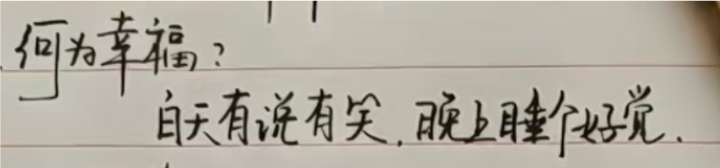 何为幸福?
白天有说有笑,晚上睡个好觉.